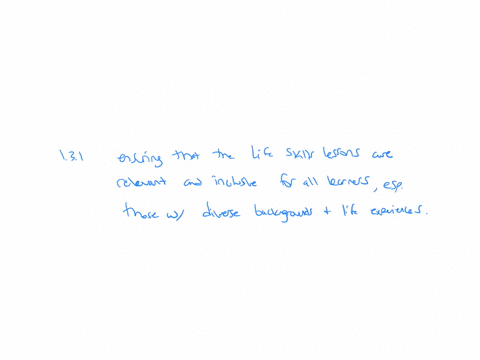 1.3.1 ensuring that the Life skills lessons are
relevant and inclusive for all learners, esp.
those w/ diverse backgrounds + life experiences.